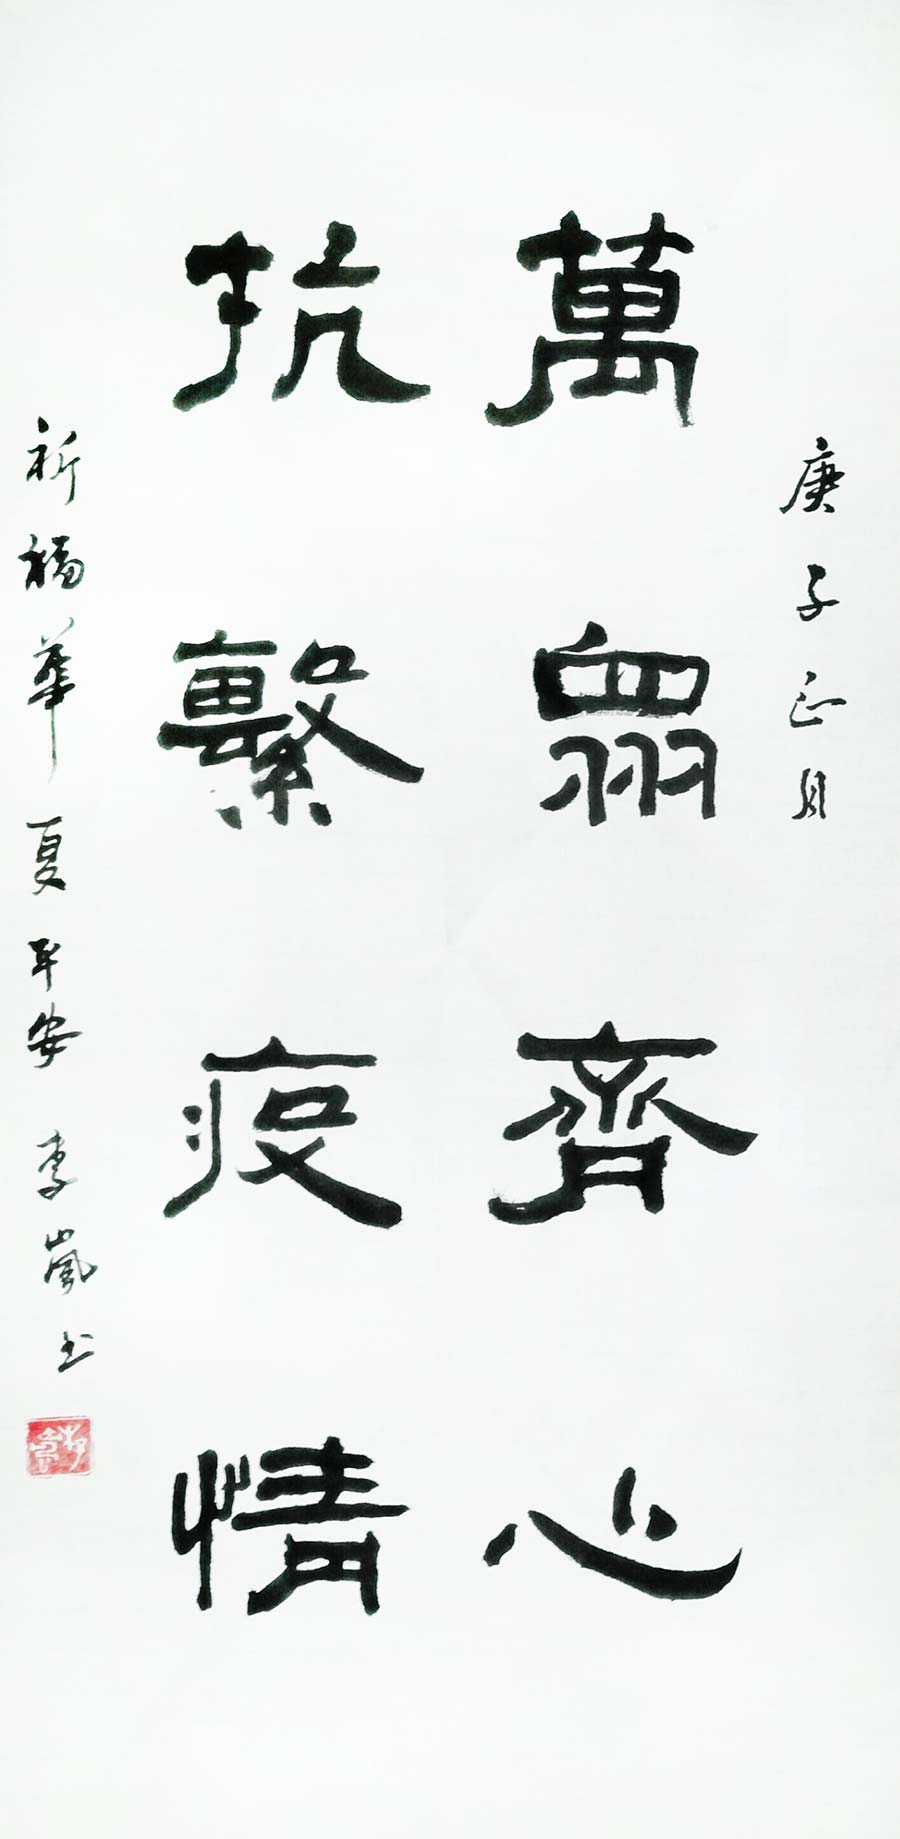 庚子正月
萬衆齊心
抗繫疫情
祈福華夏平安 李嵐书